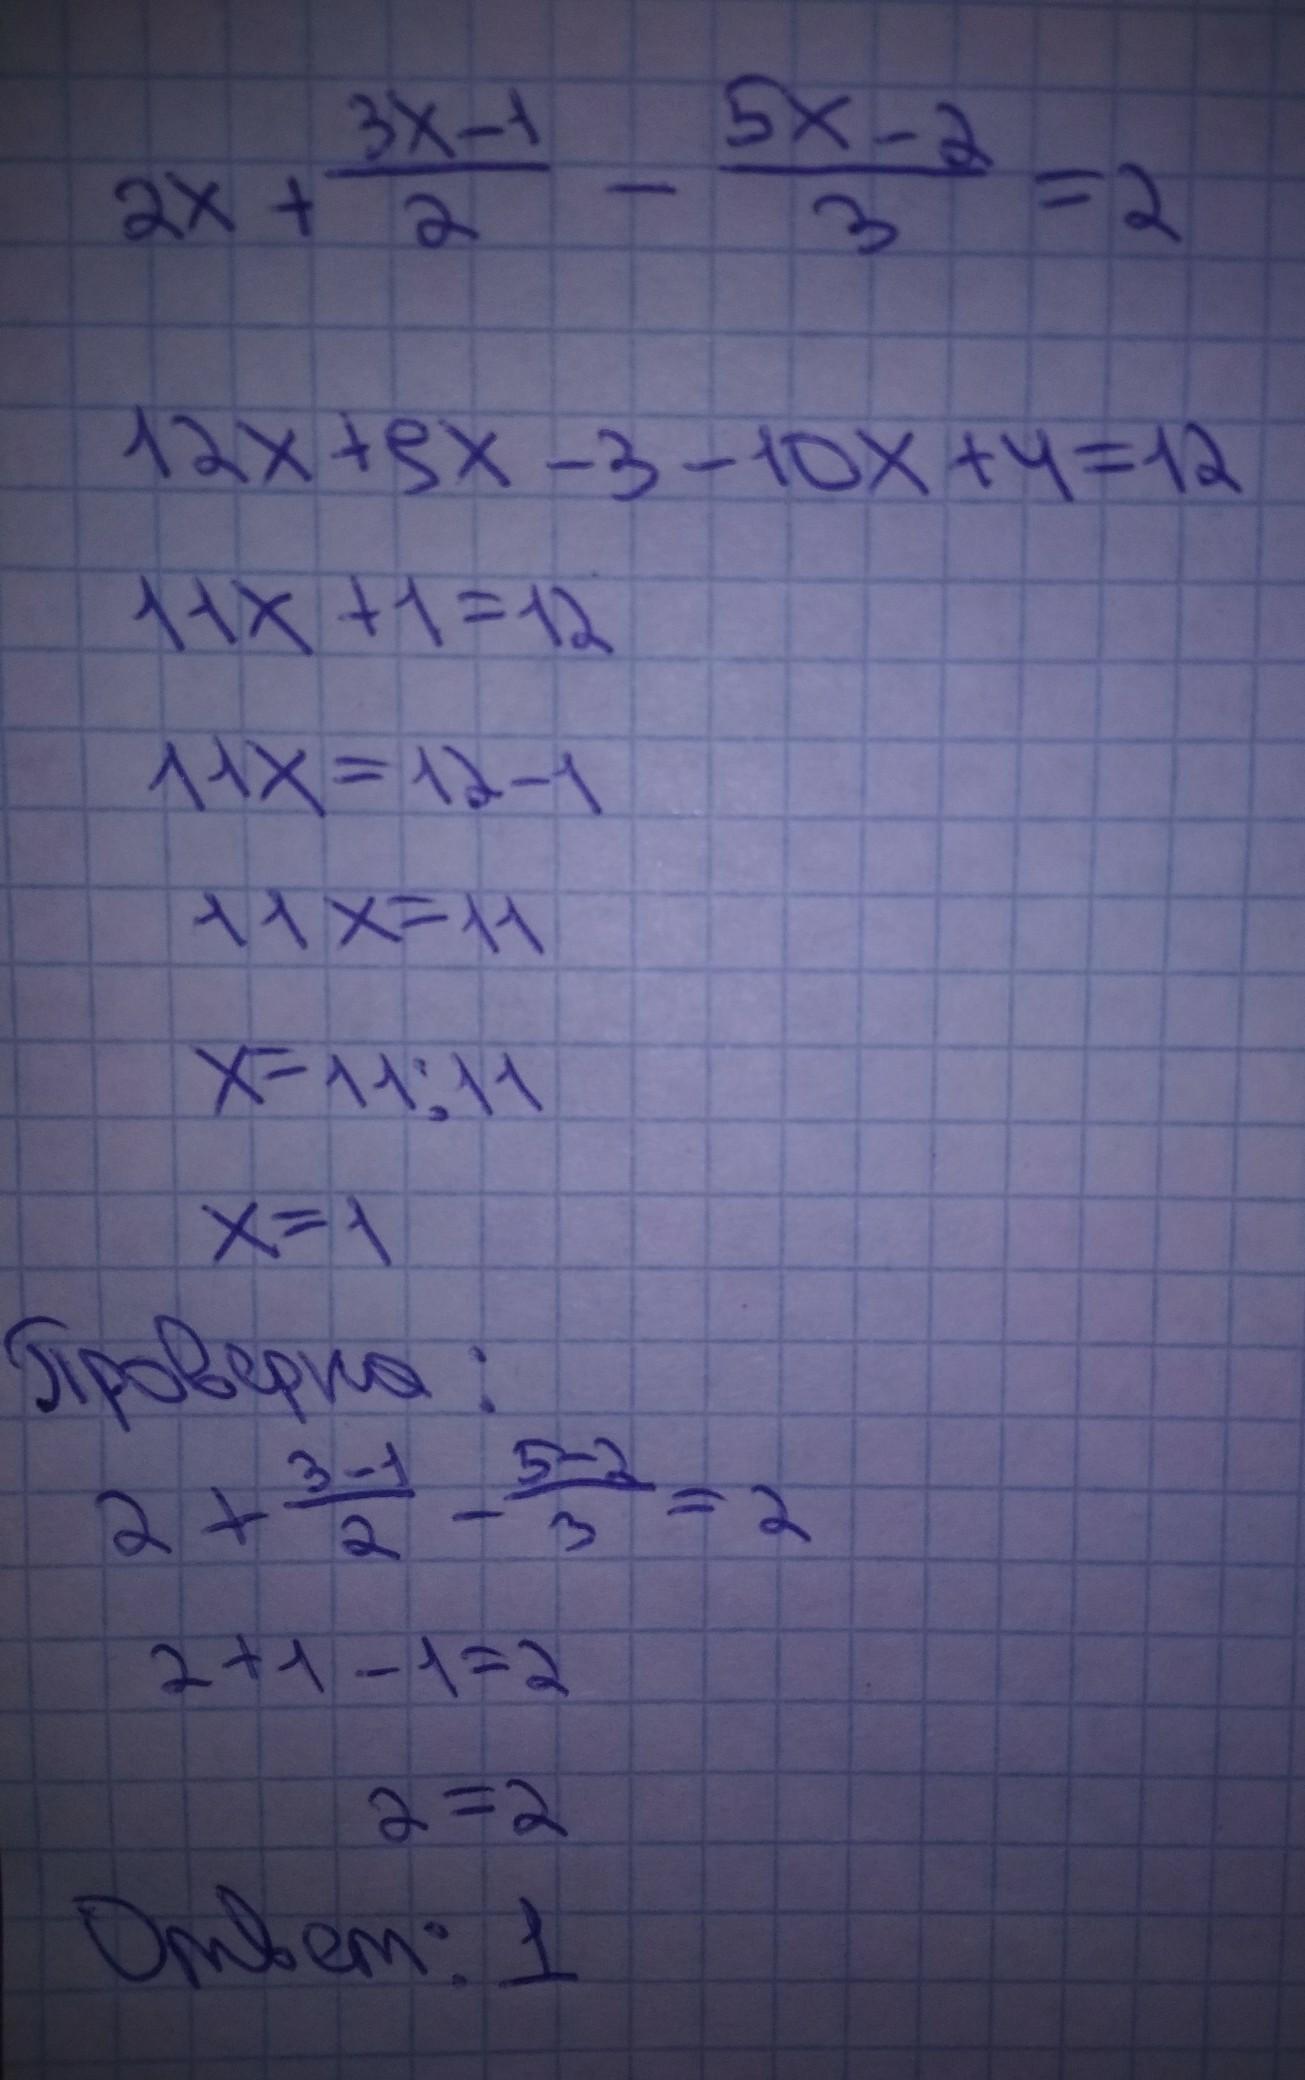 2x + (3x-1)/2 - (5x-2)/3 = 2
12x+9x-3-10x+4=12
11x+1=12
11x=12-1
11x=11
x=11:11
x=1
Проверка:
2 + (3-1)/2 - (5-2)/3 = 2
2+1-1=2
2=2
Ответ: 1